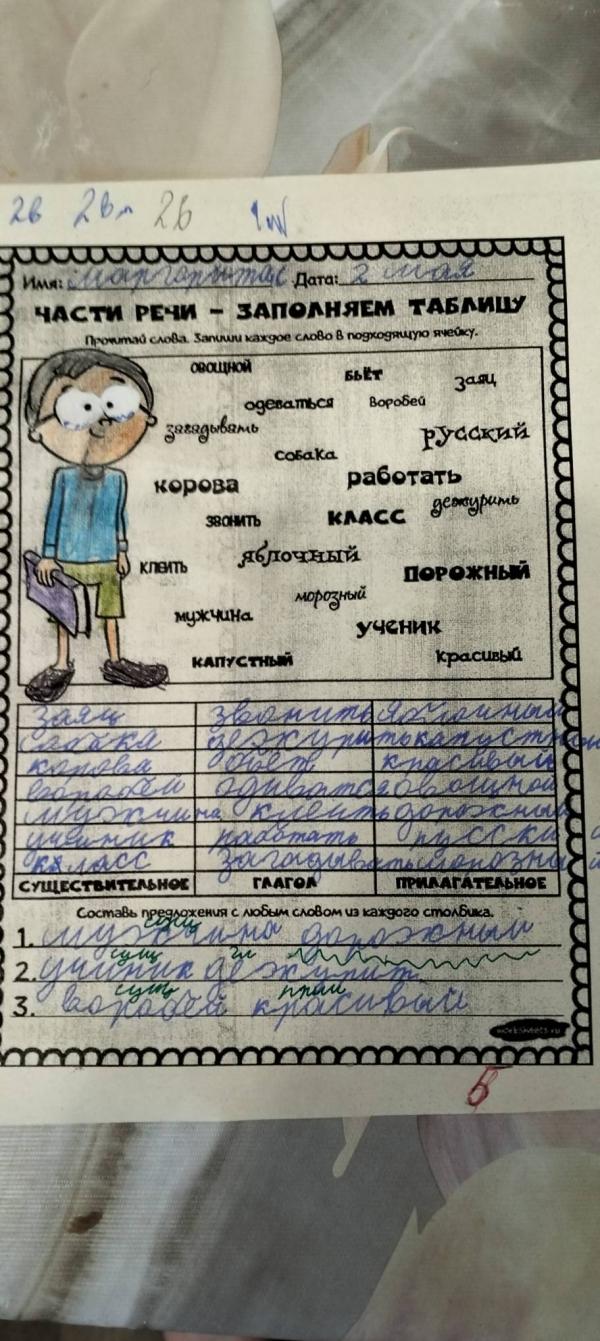 2в 2вл 2б
Имя: Маргарита Дата: 2 мая
ЧАСТИ РЕЧИ – ЗАПОЛНЯЕМ ТАБЛИЦУ
Прочитай слова. Запиши каждое слово в подходящую ячейку.
овощной бьёт заяц
одеваться воробей
загадывать русский
собака
корова работать
звонить класс дежурить
клеить яблочный порожный
морозный
мужчина ученик
капустный красивый
заяц звонить яблочный
собака дежурить капустный
корова бьёт красивый
воробей одиватся овощной
мужчина клеить дорожный
ученик работать русски
класс загадывать морозный
СУЩЕСТВИТЕЛЬНОЕ ГЛАГОЛ ПРИЛАГАТЕЛЬНОЕ
Составь предложения с любым словом из каждого столбика.
сущ
1. мужчина дорожный
сущ гл
2. ученик дежурит
сущ прил
3. воробей красивый
WORKSHEETS.RU
5